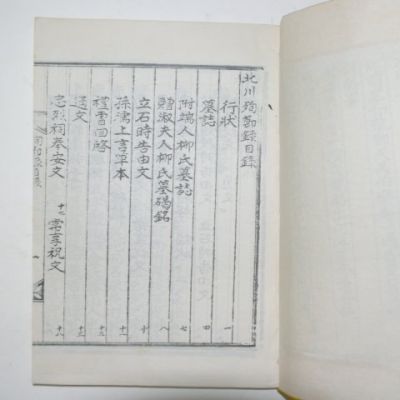 北川殉節錄目錄
行狀 一
墓誌 四
附端人柳氏墓誌 七
贈淑夫人柳氏墓碣銘 八
立石時告由文 十
孫潙上言草本 十一
禮曹回啓 十二
通文 十三
忠烈祠奉安文 十七 常享祝文 十八